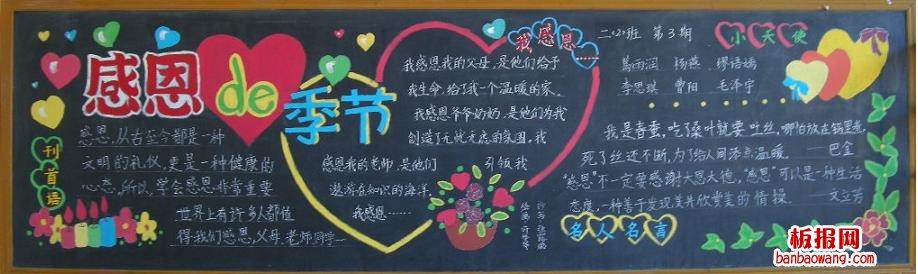 感恩de季节
刊首语
感恩,从古至今都是一种
文明的礼仪,更是一种健康的
心态,所以,学会感恩非常重要
世界上有许多人都值
得我们感恩,父母、老师、同学……
我感恩……
我感恩我的父母,是他们给予
我生命,给了我一个温暖的家。
我感恩爷爷奶奶,是他们为我
创造了无忧无虑的氛围。我
感恩我的老师,是他们引领我
遨游在知识的海洋。
我感恩……
二(2)班 第3期
小天使
葛雨润 杨燕 缪语嫣
李思琪 曹阳 毛泽宇
我是春蚕,吃了桑叶就要吐丝,哪怕放在锅里煮,
死了丝还不断,为了给人间添点温暖。——巴金
“感恩”不一定要感谢大恩大德,“感恩”可以是一种生活
态度,一种善于发现美并欣赏美的情操。 文立芳
名人名言
板报网
banbaowang.com